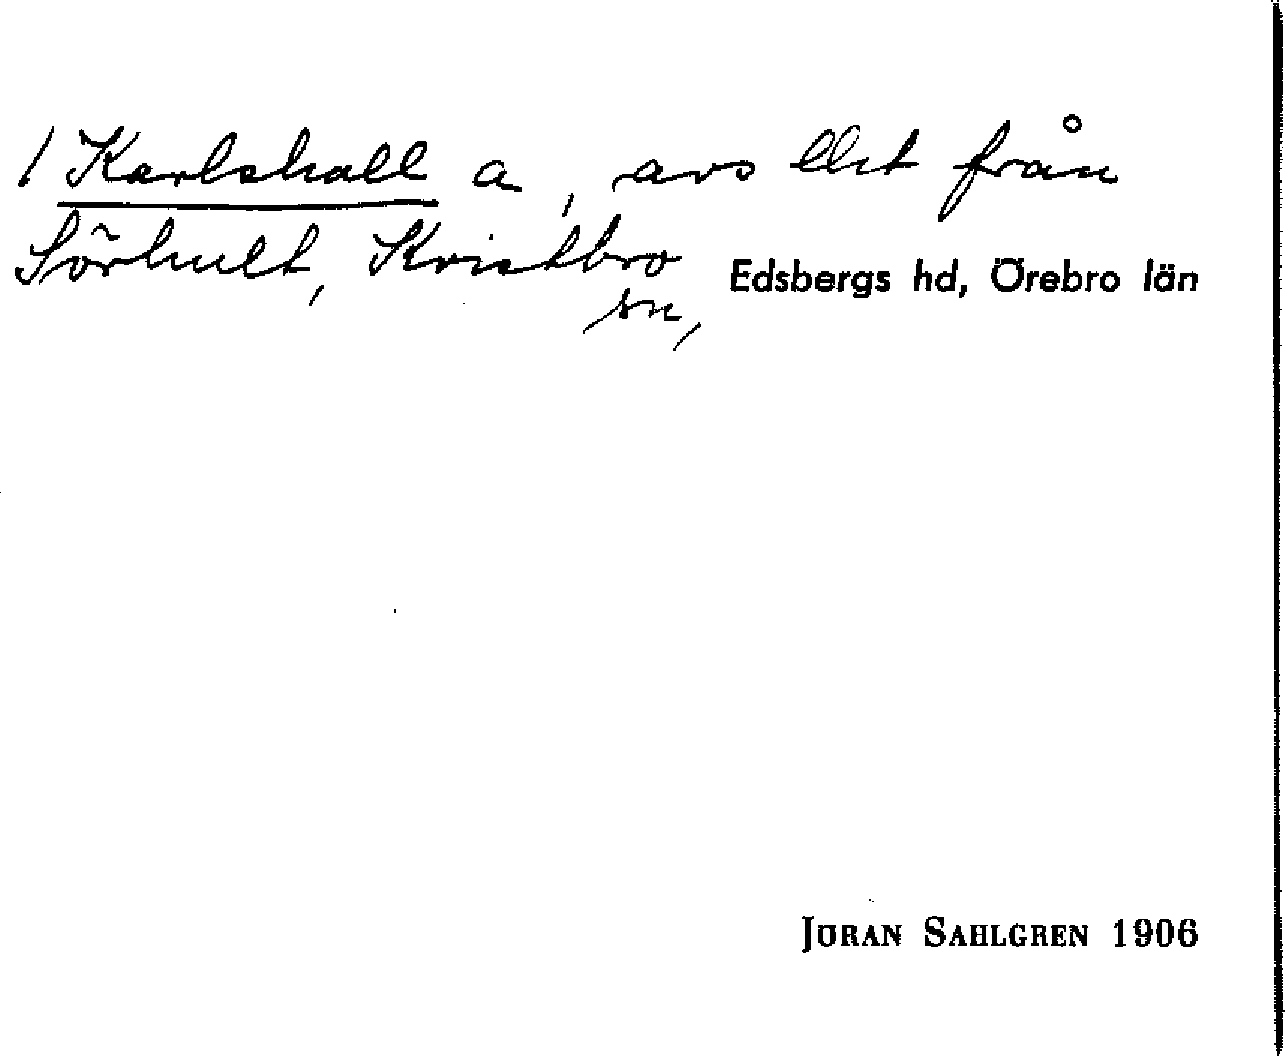 / Karlshall a, avs llet från
Sörhult, Kvistbro
sn, Edsbergs hd, Örebro län
JÖRAN SAHLGREN 1906